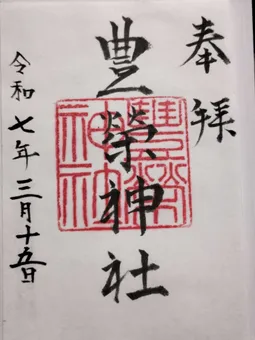 奉拝
豊榮神社
豊榮神社
令和七年三月十五日